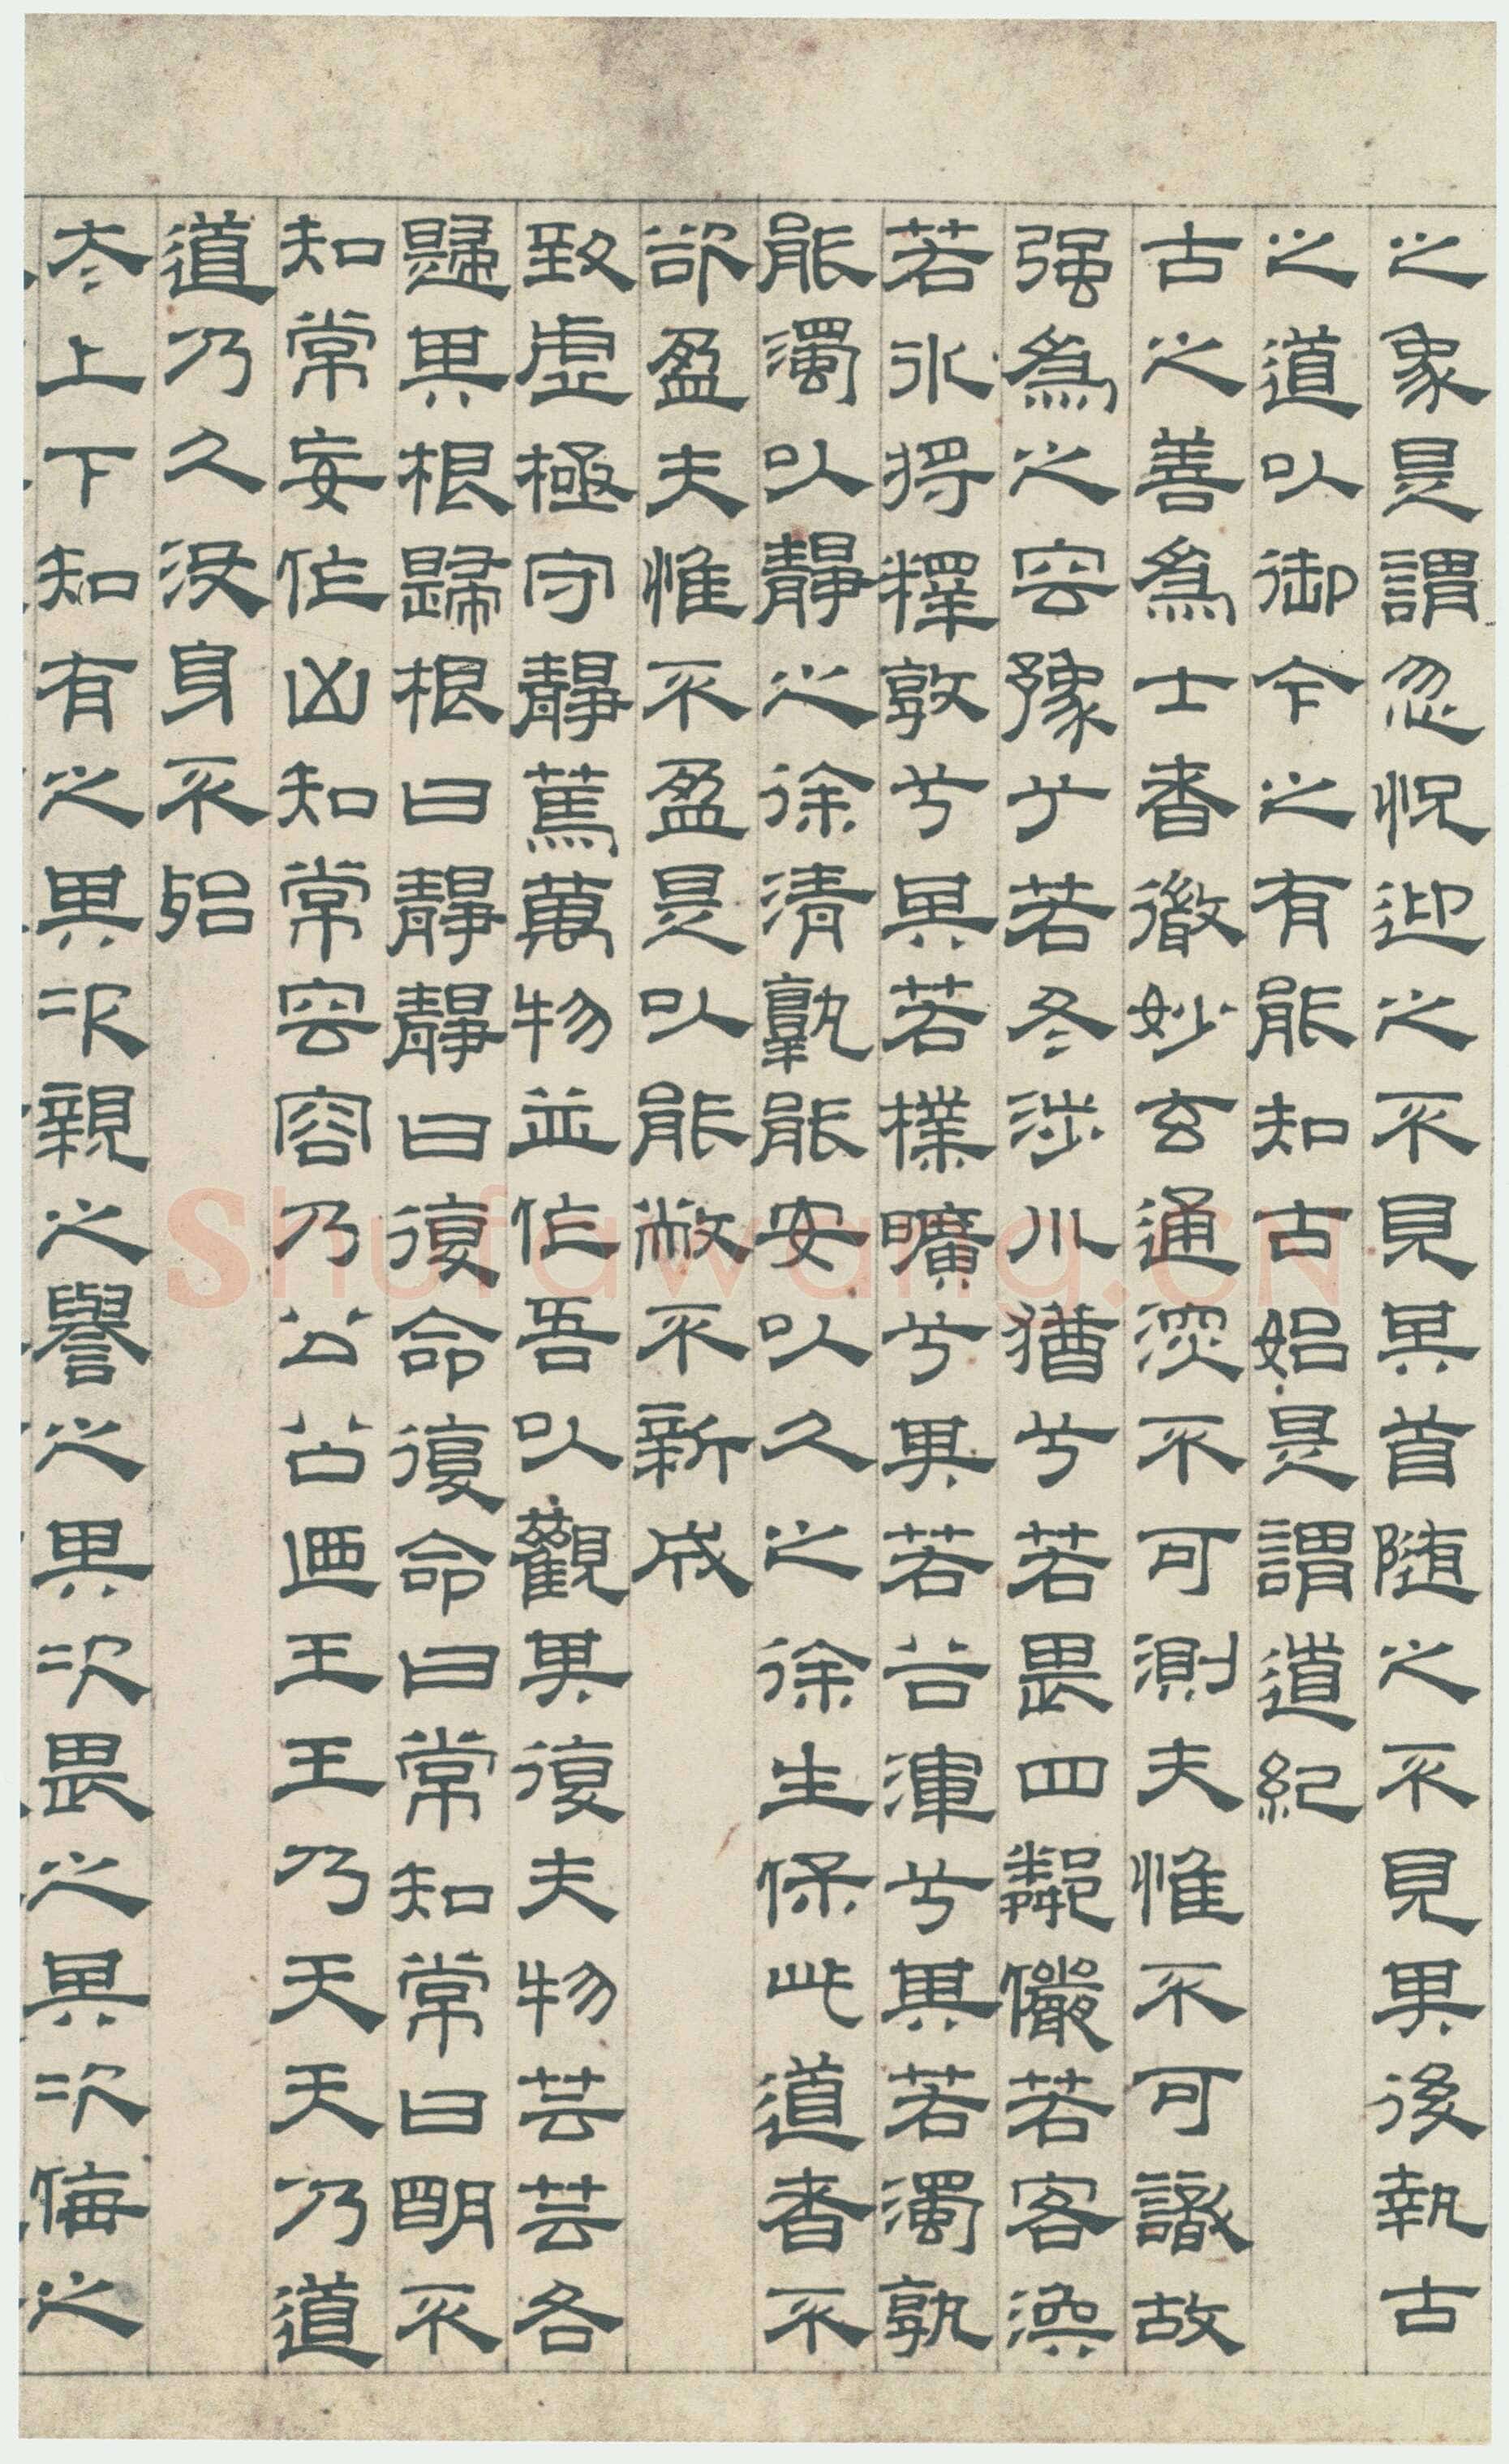 之象是謂忽怳迎之不見其首隨之不見其後執古
之道以御今之有能知古始是謂道紀
古之善為士者微妙玄通深不可測夫惟不可識故
强為之容豫兮若冬涉川猶兮若畏四鄰儼若客渙
若氷將釋敦兮其若樸曠兮其若谷渾兮其若濁孰
能濁以靜之徐清孰能安以久之徐生保此道者不
欲盈夫惟不盈是以能敝不新成
致虛極守靜篤萬物並作吾以觀其復夫物芸芸各
歸其根歸根曰靜靜曰復命復命曰常知常曰明不
知常妄作凶知常容容乃公公廼王王乃天天乃道
道乃久沒身不殆
太上下知有之其次親之譽之其次畏之其次侮之
Shufawang.CN